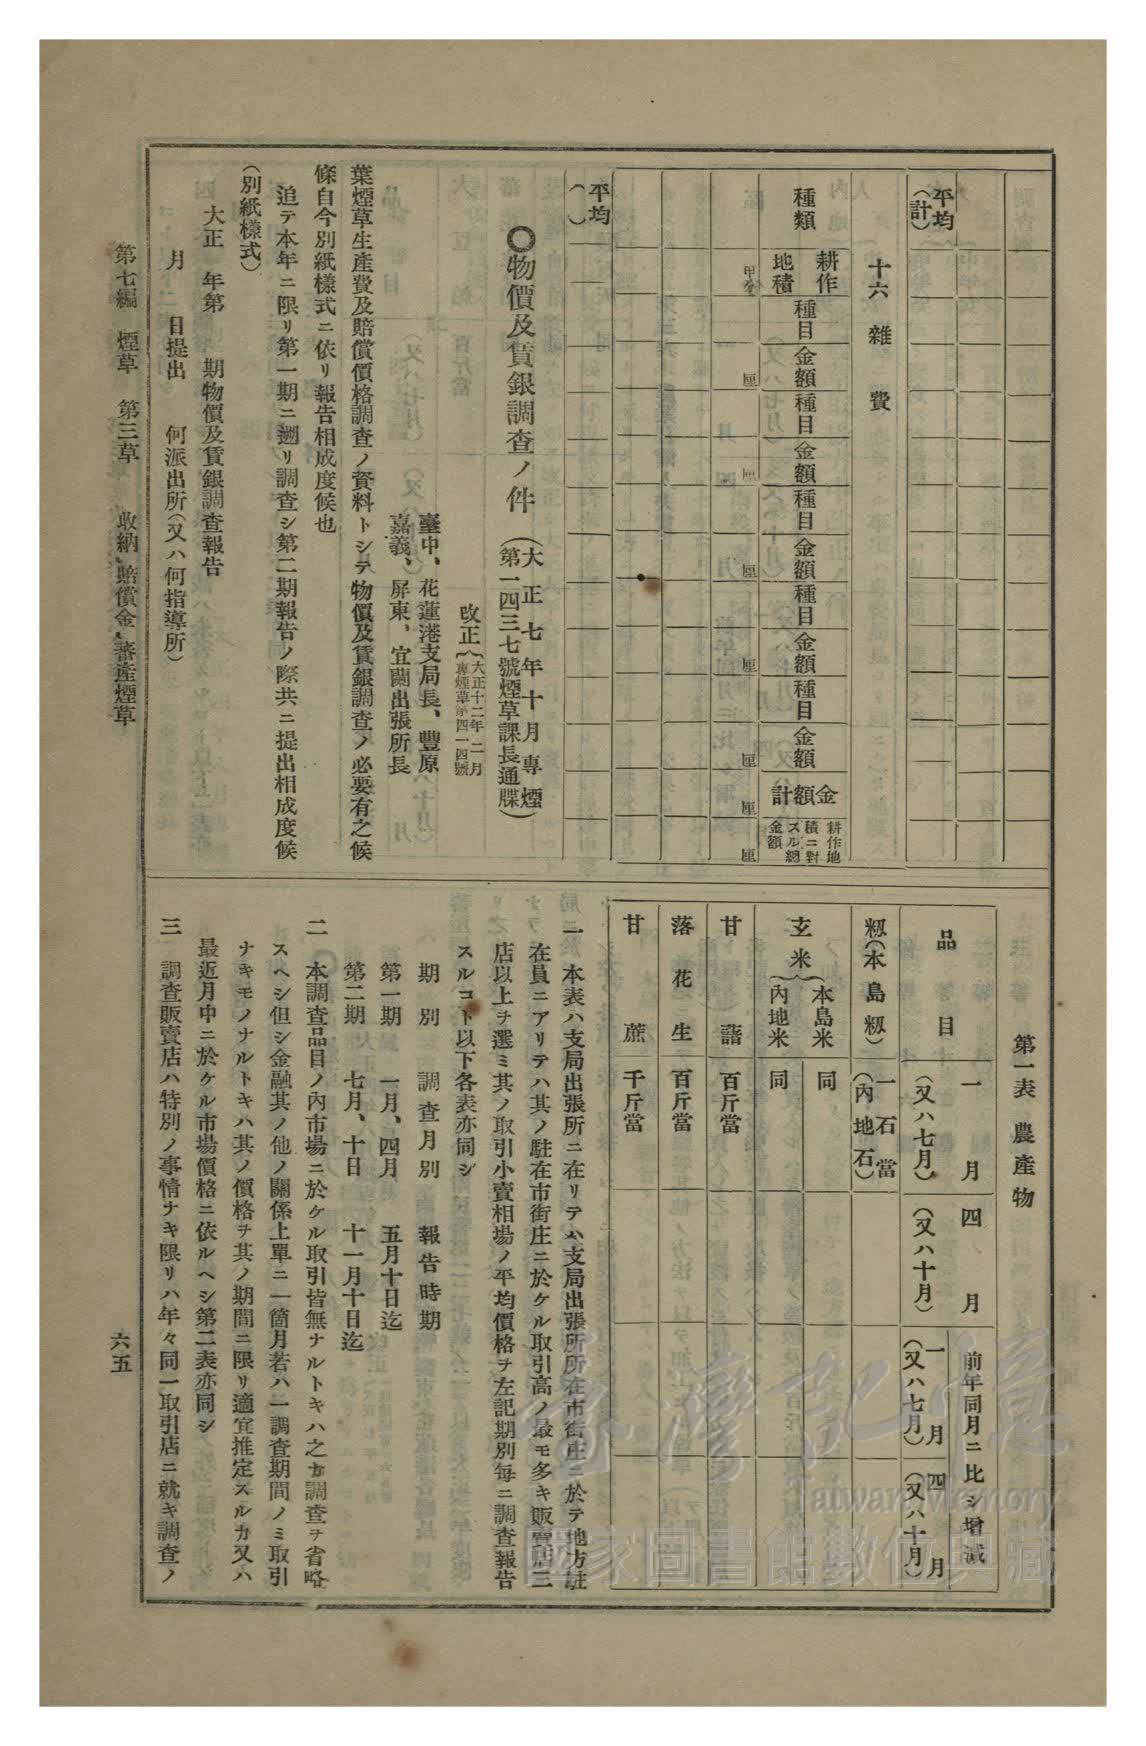 平均
(計)
十六 雜費
種類
耕作地積
種目
金額
種目
金額
種目
金額
種目
金額
種目
金額
金額計
耕作地積ニ對スル總金額
甲 厘 厘 厘 厘 厘 厘 厘
平均
( )
○物價及賃銀調查ノ件(大正七年十月專煙第一四三七號煙草課長通牒)
改正(大正十二年二月專煙草第四一四號)
臺中、花蓮港支局長、豐原
嘉義、屏東、宜蘭出張所長
葉煙草生產費及賠償價格調查ノ資料トシテ物價及賃銀調查ノ必要有之候
條自今別紙樣式ニ依リ報告相成度候也
追テ本年ニ限リ第一期ニ遡リ調查シ第二期報告ノ際共ニ提出相成度候
(別紙樣式)
大正 年第 期物價及賃銀調查報告
月 日提出 何派出所(又ハ何指導所)
第一表 農產物
品目
一月(又ハ七月)
四月(又ハ十月)
前年同月ニ比シ增減
一月(又ハ七月)
四月(又ハ十月)
籾(本島籾) 一石當(內地石)
玄米
本島米 同
內地米 同
甘藷 百斤當
落花生 百斤當
甘蔗 千斤當
一 本表ハ支局出張所ニ在リテハ支局出張所所在市街庄ニ於テ地方駐
在員ニアリテハ其ノ駐在市街庄ニ於ケル取引高ノ最モ多キ販賣店三
店以上ヲ選ミ其ノ取引小賣相場ノ平均價格ヲ左記期別每ニ調查報告
スルコト以下各表亦同シ
期別 調查月別 報告時期
第一期 一月、四月 五月十日迄
第二期 七月、十日 十一月十日迄
二 本調查品目ノ內市場ニ於ケル取引皆無ナルトキハ之カ調查ヲ省略
スヘシ但シ金融其ノ他ノ關係上單ニ一箇月若ハ一調查期間ノミ取引
ナキモノナルトキハ其ノ價格ヲ其ノ期間ニ限リ適宜推定スルカ又ハ
最近月中ニ於ケル市場價格ニ依ルヘシ第二表亦同シ
三 調查販賣店ハ特別ノ事情ナキ限リハ年々同一取引店ニ就キ調查ノ
第七編 煙草 第三草 收納、賠償金、蕃產煙草
六五
臺灣記憶
Taiwan Memory
國家圖書館數位典藏